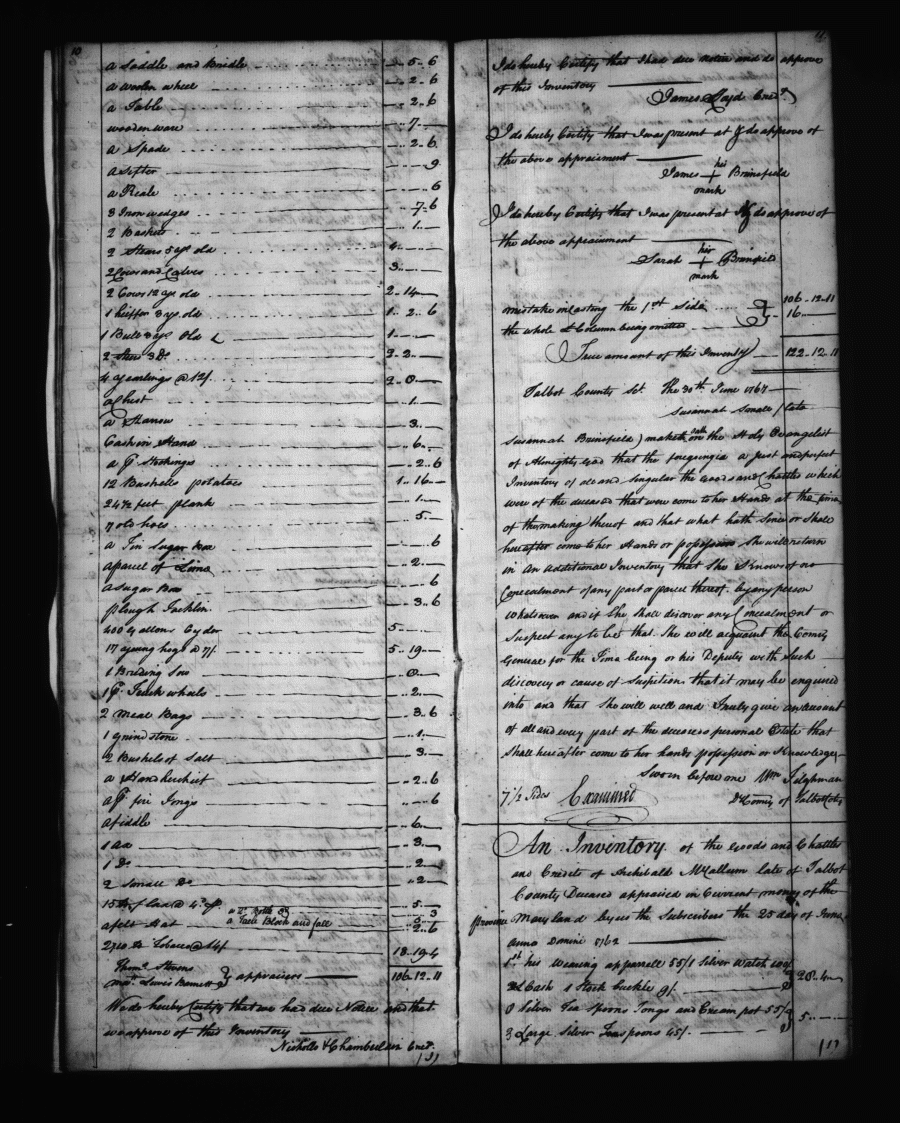 10
a Saddle and Bridle - 5 - 6
a woolen wheel - 2 - 6
a Table - 2 - 6
wooden ware - 7 -
a Spade - 2 - 6
a Sifter - 9
a Reale - 6
3 Iron wedges - 7 - 6
2 Baskets - 1 -
2 Stears 5 yr old 4 - -
2 Cows and Calves 3 - -
2 Cows 12 yrs old 2 - 14 -
1 heiffer 3 ys. old 1 - 2 - 6
1 Bull 3 yr Old 1 - -
2 Stears 3 Do 3 - 2 -
4 yearlings @ 12/ 2 - 0 -
a Chest - 1 -
a Harrow - 3 -
Cash on Hand - 6 -
a pr Stockings - 2 - 6
12 Bushells potatoes 1 - 16 -
247 feet plank - 1 -
7 old hoes - 5 -
a Tin Sugar Box - 6
a parcel of Lime - 2 -
a Sugar Box - 6
plough Tacklin - 3 - 6
400 Gallons Cyder 5 - -
17 young hogs @ 7/ 5 - 19 -
1 Breding Sow
1 pr Truck wheels - 2 -
2 Meal Bags - 3 - 6
1 grindstone - 1 -
2 Bushels of Salt - 3 -
a Handkerchief - 2 - 6
a pr fire Tongs - 6
a fiddle - 6 -
1 ax - 3 -
1 Do - 2 -
2 Small Do - 2
15 lb of Lead @ 4d - 5 -
a Block and fall
a felt Hat - 2 - 6
lb Tobacco @ 14/ 18 - 19 - 4
Thoms. Stevens
Lewis } appraisers 106 - 12 - 11
We do hereby Certify that we had due Notice and that
we approve of this Inventory
Nicholls & Chamberlain Credr.
11
I do hereby Certify that I had due notice and do approve
of this Inventory
James Lloyd Credr.
I do hereby Certify that I was present at & do approve of
the above appraisment
his
James + Brinsfield
mark
I do hereby Certify that I was present at & do approve of
the above appraisment
her
Sarah + Brinsfield
mark
mistake in casting the 1st Side } 106 - 12 - 11
the whole £ Column being omitted } 16 - -
True amount of this Inventy 122 - 12 - 11
Talbot County Sct. The 30th June 1767
Susannah Small (late
Susannah Brinsfield) maketh oath on the Holy Evangelist
of Almighty God that the foregoing is a just and perfect
Inventory of all and singular the Goods and Chattles which
were of the deceased that were come to her Hands at the time
of the making thereof and that what hath Since or Shall
hereafter come to her Hands or possession She will return
in an additional Inventory that She Knows of no
Concealment of any part or parcel thereof by any person
whatsoever and if She Shall discover any Concealment or
Suspect any to be that She will acquaint the Comis
General for the Time being or his Deputy with Such
discovery or cause of Suspition that it may be enquired
into and that She will well and Truly give an Account
of all and every part of the deceaseds personal Estate that
Shall hereafter come to her hands possession or Knowledge
Sworn before me Wm Tilghman
7 1/2 Sides Examined D Comis of Talbot Coty
An Inventory of the Goods and Chattles
and Credits of Archibald McCallum late of Talbot
County Deceased appraised in Current money of the
province Maryland by us the Subscribers the 25 day of June
Anno Domini 1762
1st his wearing apparrell 55/1 Silver Watch
Cash 1 Stock Buckle 9/ 28 - 4 -
8 Silver Tea Spoons Tongs and Cream pot 55/
3 Large Silver Teaspoons 45/ 5 - -